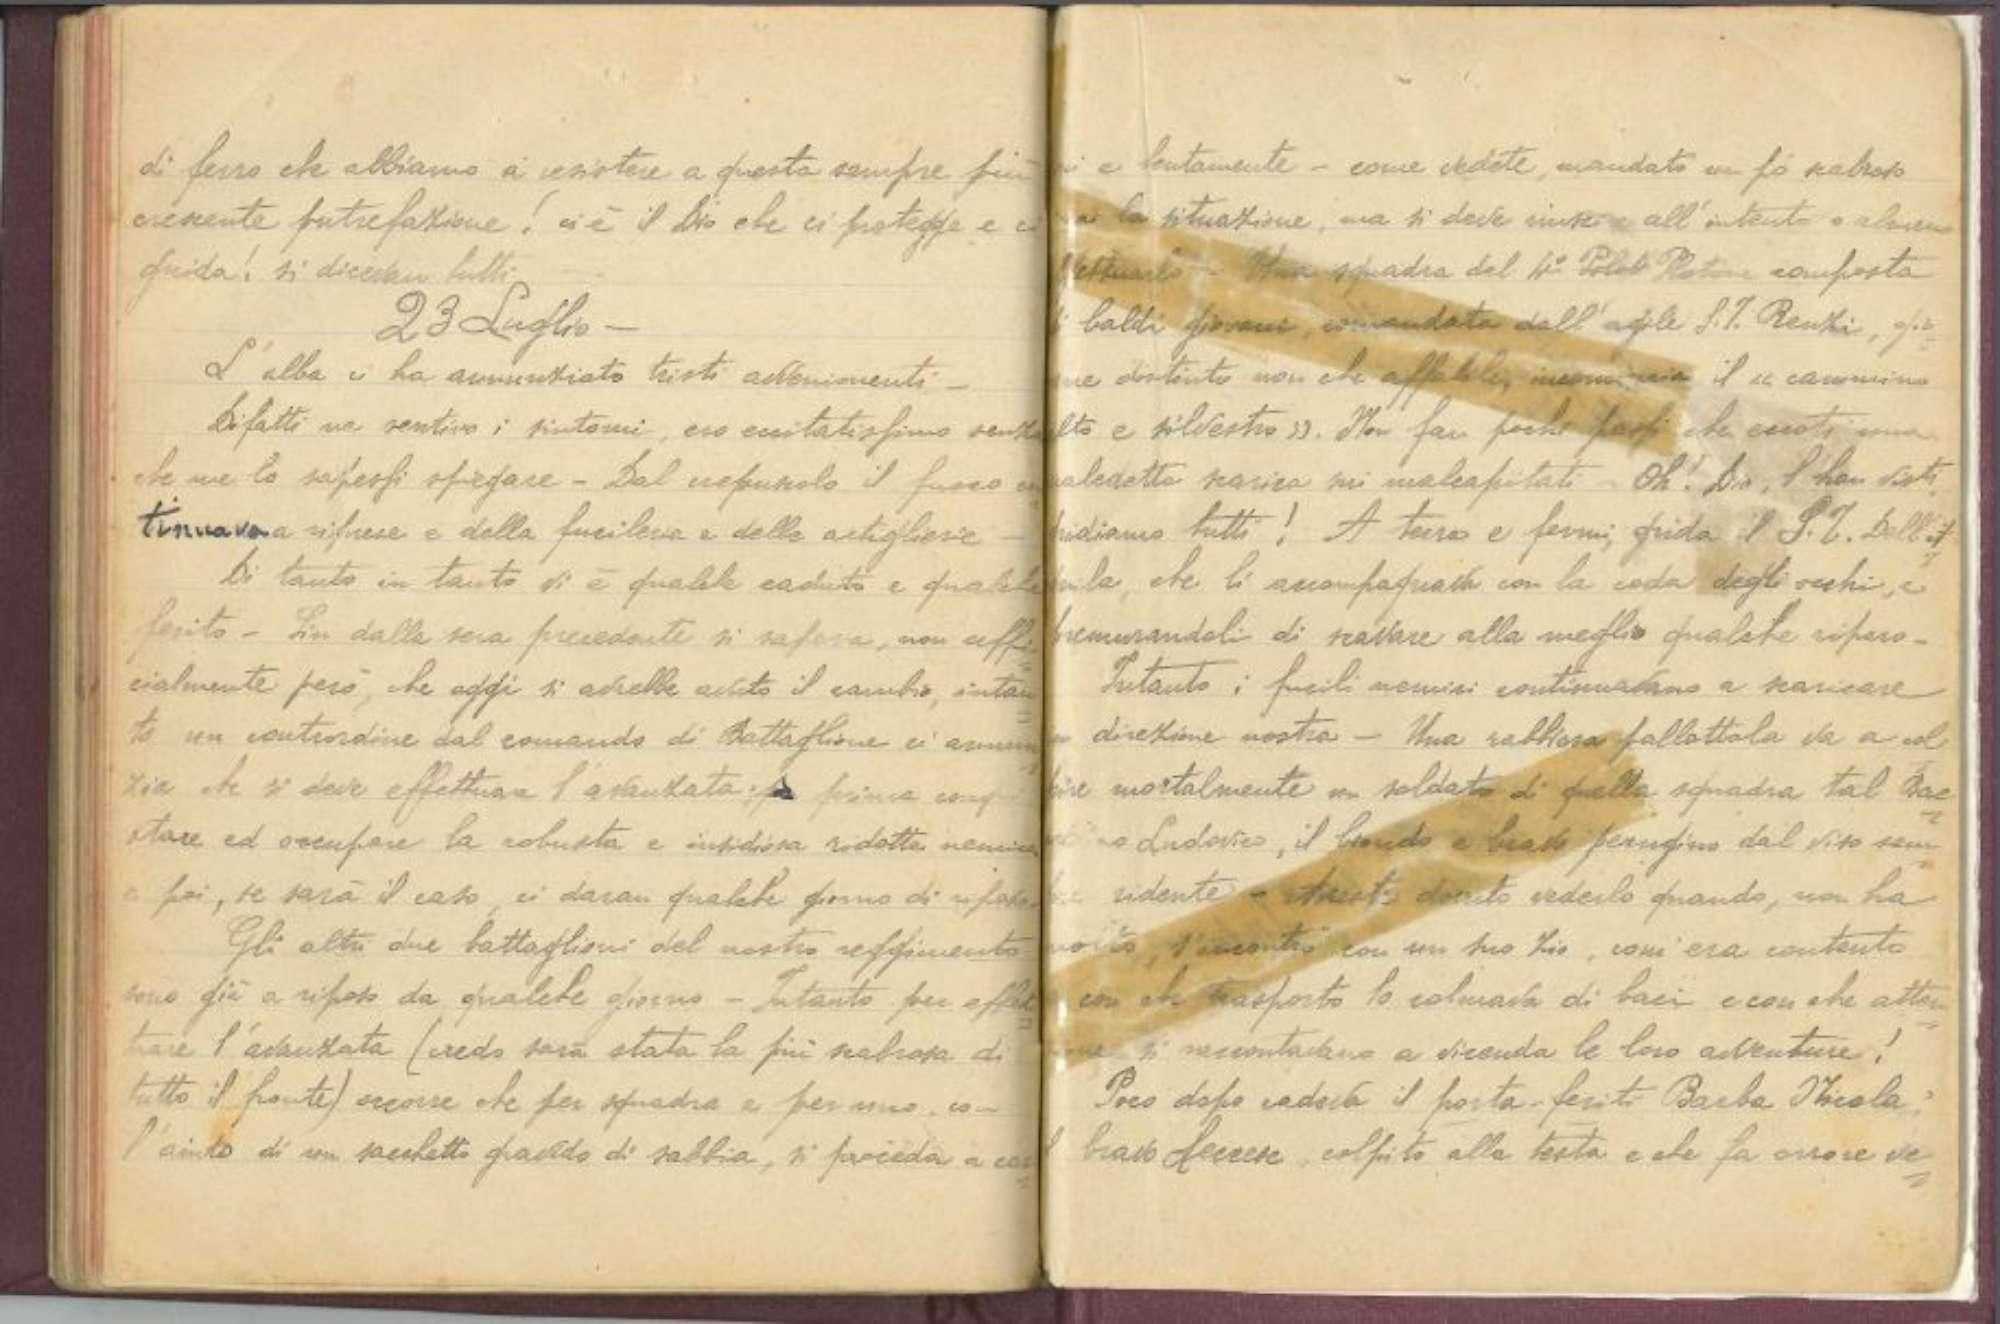 di ferro che abbiamo a resistere a questa sempre più
crescente putrefazione! ci è il Dio che ci protegge e ci
guida! si dicevan tutti
23 Luglio —
L'alba ci ha annunziato tristi avvenimenti —
Difatti ne sentivo i sintomi, ero eccitatissimo senza
che me lo sapessi spiegare — Dal crepuscolo il fuoco con
tinuava a riprese e della fucileria e delle artiglierie —
Di tanto in tanto vi è qualche caduto e qualche
ferito — Fin dalla sera precedente si sapeva, non uffi=
cialmente però, che oggi si avrebbe avuto il cambio, intan=
to un contrordine dal comando di Battaglione ci annun=
zia che si deve effettuare l'avanzata: prima conqui
stare ed occupare la robusta e insidiosa ridotta nemica
e poi, se sarà il caso, ci daran qualche giorno di riposo.
Gli altri due battaglioni del nostro reggimento
sono già a riposo da qualche giorno — Intanto per effet=
tuare l'avanzata (credo sarà stata la più scabrosa di
tutto il fronte) occorre che per squadra e per uno, con
l'aiuto di un sacchetto gravido di sabbia, si proceda a car=
ni e lentamente — come vedete, mandato un pò scabroso
la situazione, ma si deve riuscire all'intento o almeno
— Una squadra del 4° Plotone composta
di baldi giovani, comandata dall'agile S.T. Renzi, gio=
ne distinto non che affabile, incomincia il « cammino
alto e silvestro ». Non fan pochi passi che eccoti una
maledetta scarica sui malcapitati — Oh! Dio, l'han visti,
tutti! A terra e fermi, grida il S.T. Dell'A=
quila, che li accompagnava con la coda degli occhi, e
premurandoli di scavare alla meglio qualche riparo —
Intanto i fucili nemici continuavano a scaricare
in direzione nostra — Una rabbiosa pallottola va a col
pire mortalmente un soldato di quella squadra tal Bac=
Ludovico, il biondo e bravo perugino dal viso sem=
pre ridente — Avresti dovuto vederlo quando, non ha
molto, s'incontrò con un suo zio, com'era contento
e con che trasporto lo colmava di baci e con che atten=
zione si raccontavano a vicenda le loro avventure!
Poco dopo cadeva il porta-feriti Barba Nicola,
il bravo, colpito alla testa e che fa orrore ve=